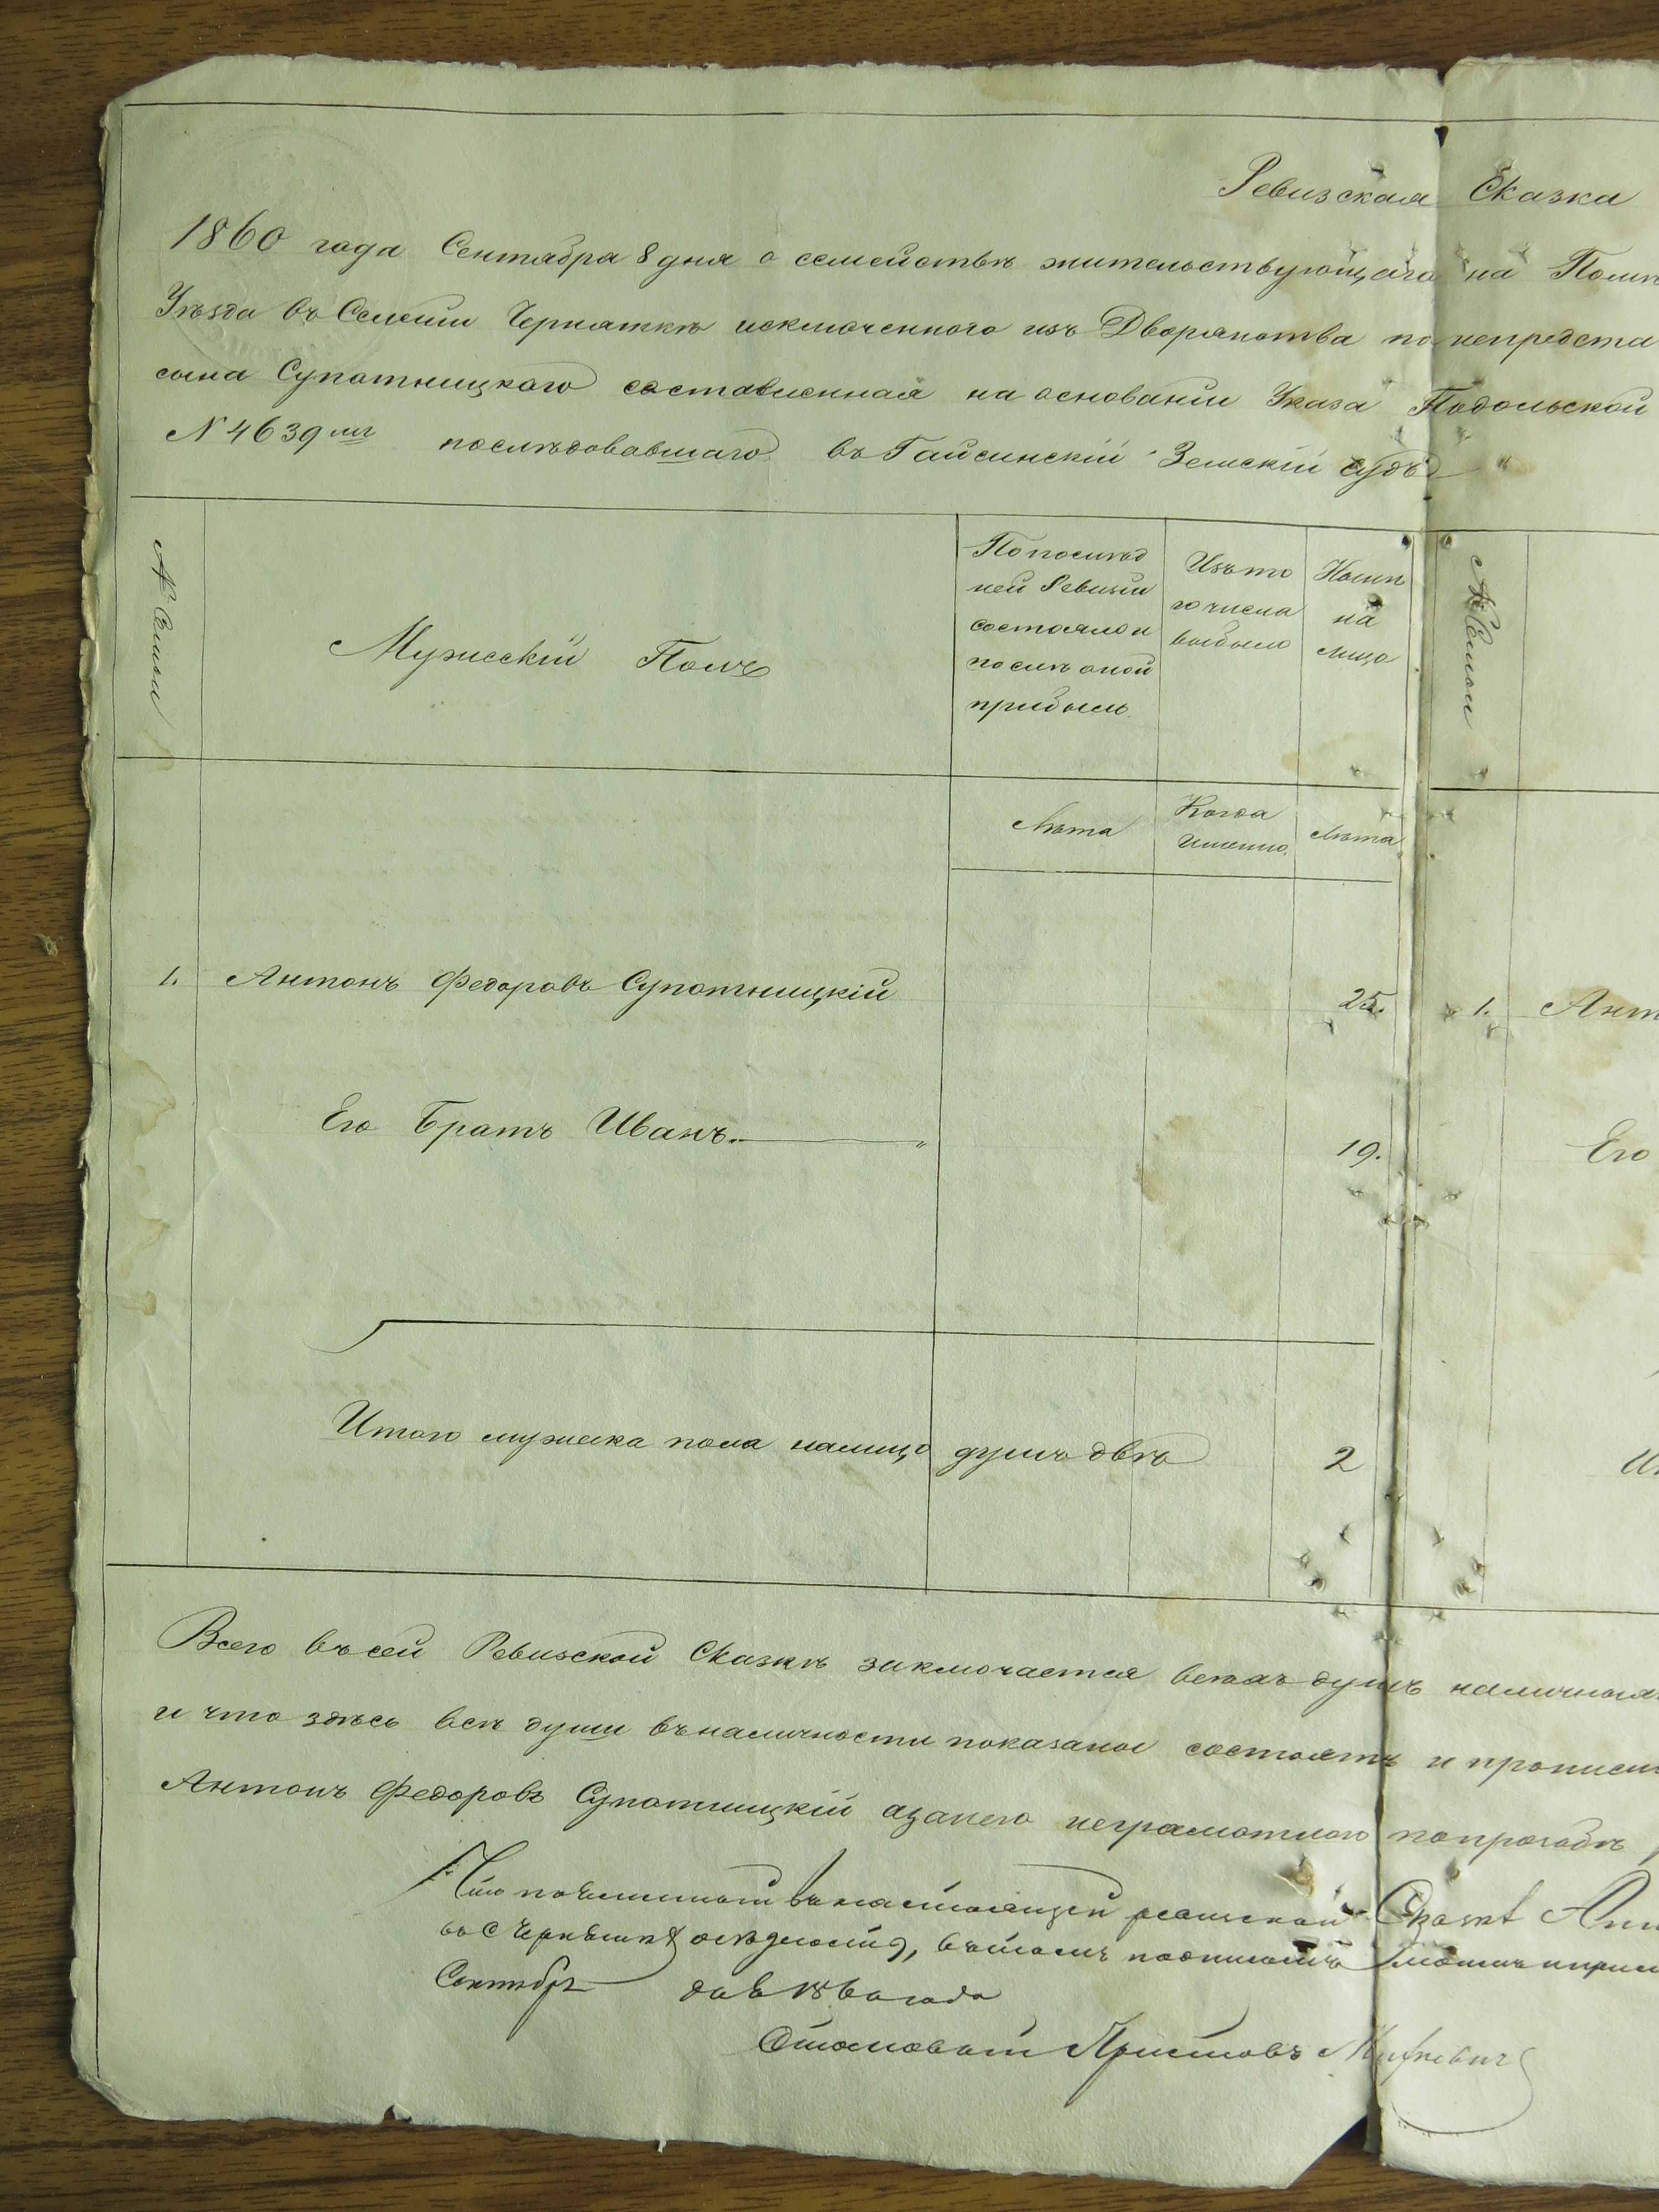 Ревизская Сказка
1860 года Сентября 8 дня о семействѣ жительствующаго на
Уѣзда въ Селении Черняткѣ исключенного изъ Дворянства по непредста
сына Супотницкого составленная на основании Указа Подольской
N 4639 послѣдовавшаго въ Гайсинскій Земскій Судъ
№ Семьи
Мужескій Полъ
По послѣд
ней Ревизіи
состояло и
послѣ оной
прибыло
Изъ то
го числа
выбыло
Нынѣ
на
лицо
№ Семьи
Лѣта
Когда
именно.
Лѣта
1. Антонъ Федоровъ Супотницкій 25. 1. Ант
Его Братъ Иванъ 19. Его
Итого мужеска пола налицо душъ двѣ 2 И
Всего въ сей Ревизской Сказкѣ заключается всѣхъ душъ наличныхъ
и что здѣсь всѣ души въ наличности показаны состоятъ и
Антонъ Федоровъ Супотницкій а за него неграмотного по прозбѣ
Что въ настоящей ревизской Сказкѣ Ан
въ томъ
Сентября 1860 года
Становой Приставъ